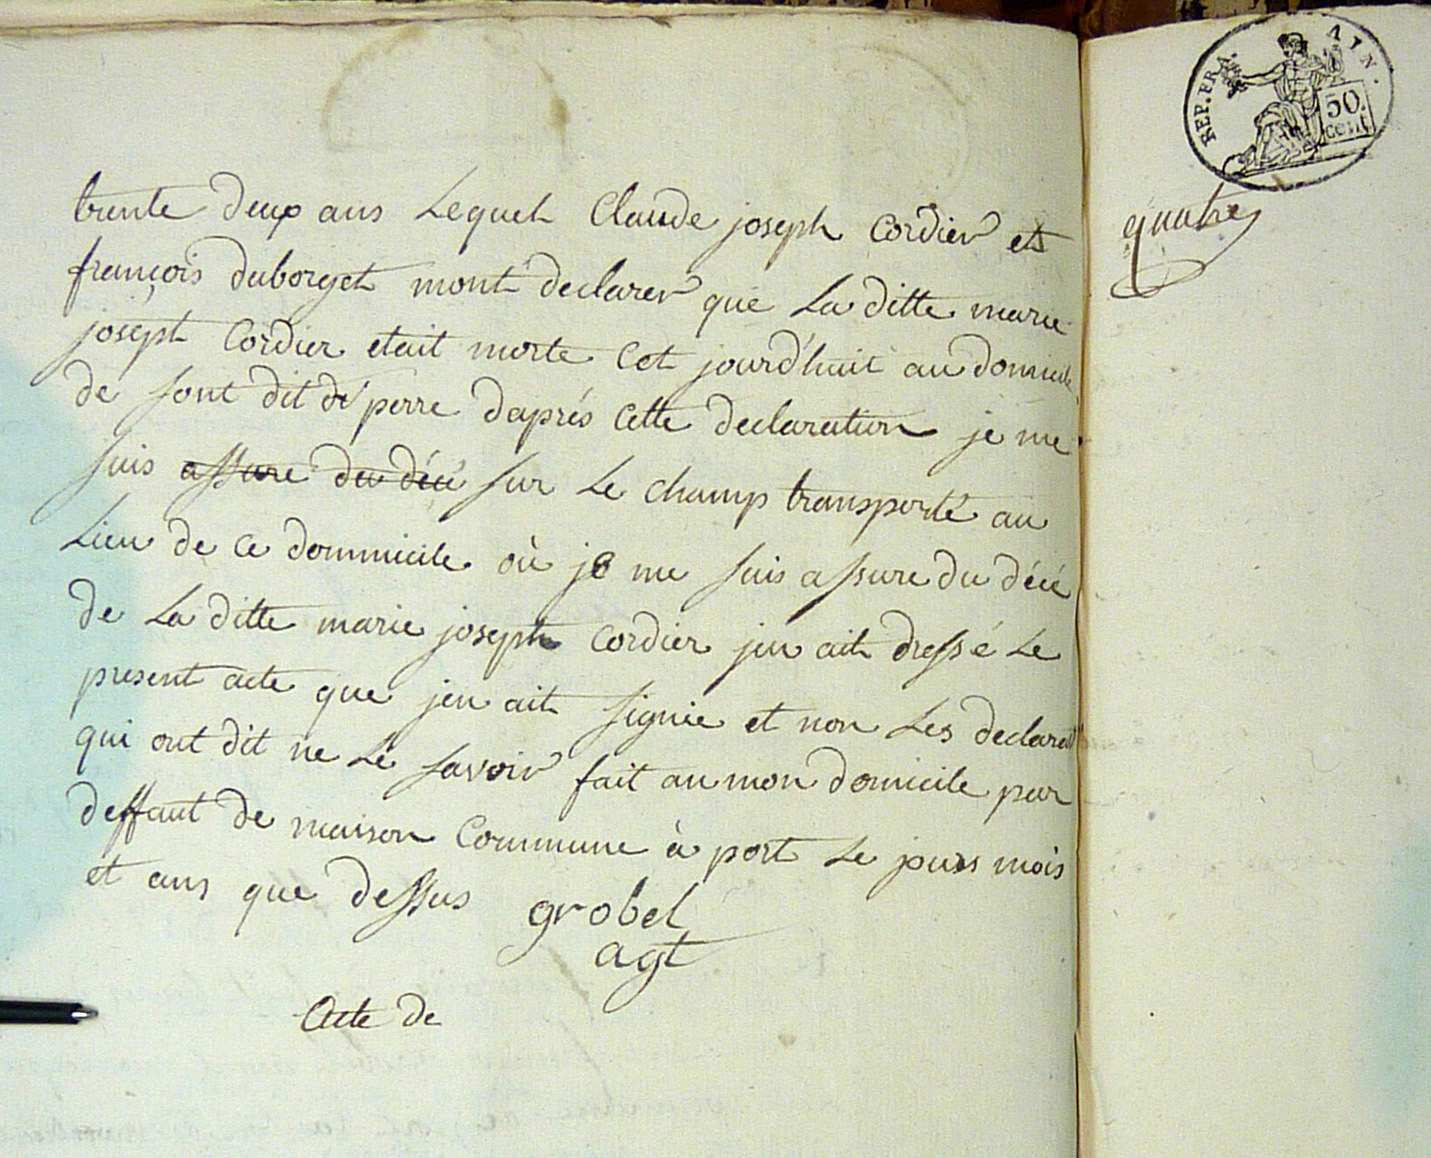 trente deux ans Lequel Claude joseph Cordier et
françois duborget mont declarer que La ditte marie
joseph Cordier etait morte Cet jourd'huit au domicile
de sont dit perre daprés Cette declaration je me
suis assure du décé sur Le champ transporté au
Lieu de ce dommicile où je me suis assure du décé
de La ditte marie joseph Cordier jen ait dressé Le
present acte que jen ait signie et non Les declarat
qui ont dit ne Le savoir fait au mon domicile par
deffaut de maison Commune à port Le jours mois
et ans que dessus grobel
agt
Acte de
REP. FRA. AIN.
50. cent
quatre